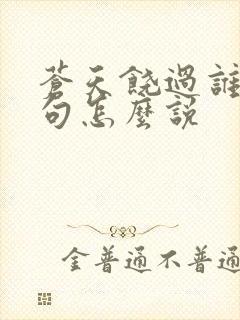 蒼天饒過誰
句怎麼說
金普通不普通